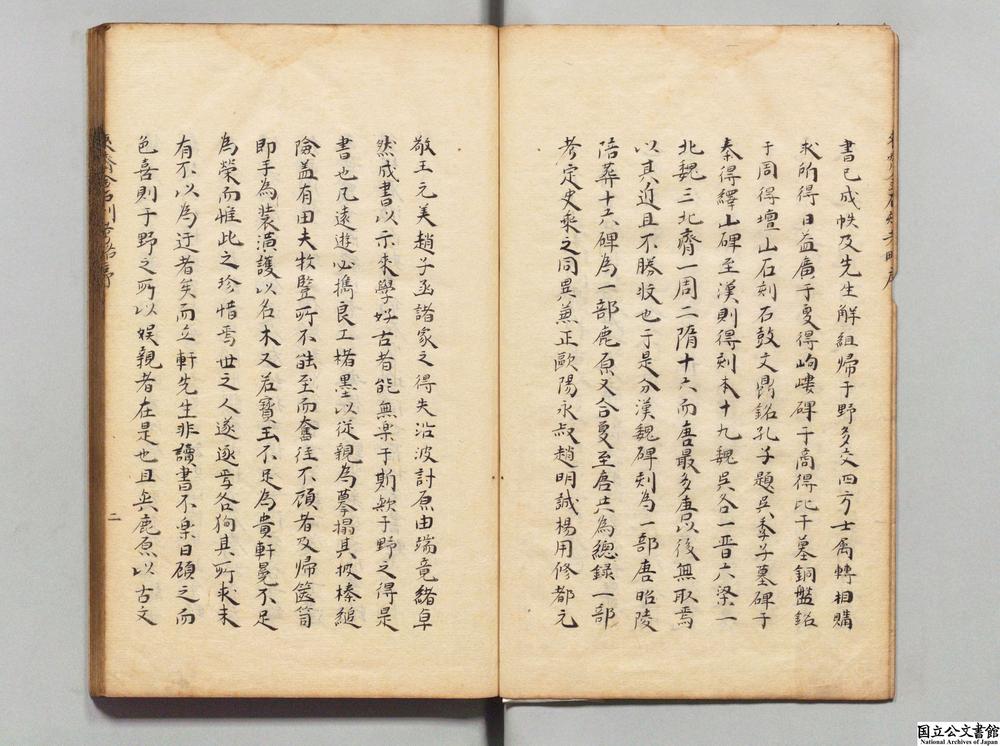 書已成帙及先生解組歸于野多交四方士寓轉相購
求所得日益廣于夏得岣嶁碑于商得比干墓銅盤銘
于周得壇山石刻石鼓文鼎銘孔子題吳季子墓碑于
秦得繹山碑至漢則得刻本十九魏吳各一晋六梁一
北魏三北齊一周二隋十六而唐最多唐以後無取焉
以其近且不勝收也于是分漢魏碑刻為一部唐昭陵
陪葬十六碑為一部鹿原又合夏至唐共為總錄一部
考定史乘之同異兼正歐陽永叔趙明誠楊用修都元
敬王元美趙子函諸家之得失沿波討原由端竟緒卓
然成書以示來學好古者能無楽于斯欤于野之得是
書也凡遠遊必攜良工楮墨以從親為摹搨其披榛縋
險益有田夫牧豎所不能至而奮往不顧者及歸篋笥
即手為裝潢護以名木又若寶玉不足為貴軒冕不足
為榮而惟此之珍惜焉世之人遂逐焉各狥其所求未
有不以為迂者矣而立軒先生非讀書不楽日顧之而
色喜則于野之所以娱親者在是也且與鹿原以古文
二
國立公文書館
National Archives of Japan